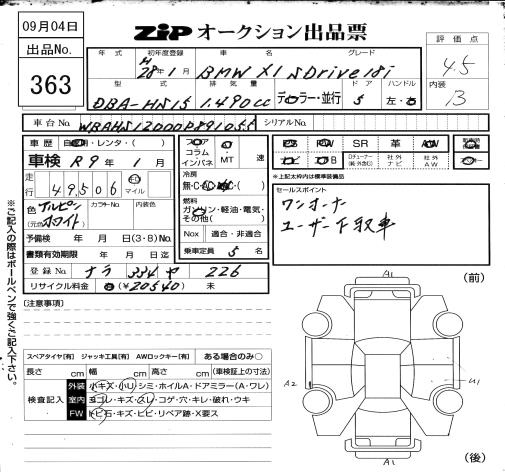 09月04日
ZIP オークション出品票
出品No.
363
年式 初年度登録 車名 グレード
H 28年1月 BMW X1 sDrive18i
評価点
4.5
型式 排気量 ドア ハンドル
DBA-HS15 1,490cc ディーラー・並行 5 左・右
内装
B
車台No.
シリアルNo.
車歴 自家用・レンタ・( )
車検 R9年1月
走行 49,506 km マイル
フロア コラム インパネ
MT 速
冷房
無・C・AC・AAC( )
燃料
ガソリン・軽油・電気・その他( )
Nox 適合・非適合
乗車定員 5名
PS PW SR 革 AW
ナビ TV B Dチューナー 社外ナビ 社外AW
*上記太枠内は標準装備品
セールスポイント
ワンオーナー
ユーザー下取車
色 アルピンホワイト
(元色)
カラーNo. 内装色
予備検 年 月 日(3・8)No.
書類有効期限 年 月 日迄
登録No. ナラ 334 ヤ 226
リサイクル料金 済(¥20540) 未
(注意事項)
スペアタイヤ[有] ジャッキ工具[有] AWロックキー[有] ある場合のみ○
長さ cm 幅 cm 高さ cm (車検証上の寸法)
検査記入
外装 小キズ・小U・シミ・ホイルA・ドアミラー(A・ワレ)
室内 ヨゴレ・キズ・スレ・コゲ・穴・キレ・破れ・ウキ
FW トビ石・キズ・ヒビ・リペア跡・X要ス
(前)
A1
A2
U1
A1
(後)
※ご記入の際はボールペンで強くご記入下さい。